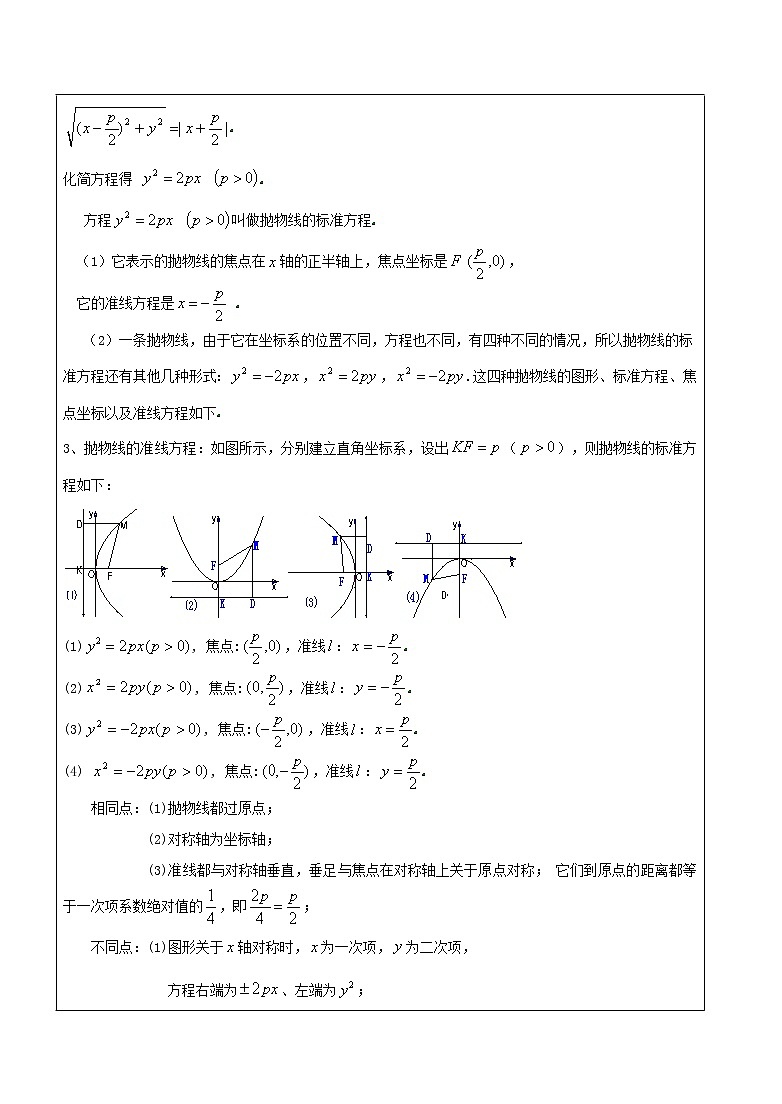 √((x−p/2)²+y²)=|x+p/2|。
化简方程得 y²=2px (p>0)。
方程y²=2px (p>0)叫做抛物线的标准方程。
(1)它表示的抛物线的焦点在x轴的正半轴上，焦点坐标是F (p/2,0)，
它的准线方程是x=−p/2 。
(2)一条抛物线，由于它在坐标系的位置不同，方程也不同，有四种不同的情况，所以抛物线的标
准方程还有其他几种形式：y²=−2px，x²=2py，x²=−2py.这四种抛物线的图形、标准方程、焦
点坐标以及准线方程如下。
3、抛物线的准线方程：如图所示，分别建立直角坐标系，设出KF=p（p>0），则抛物线的标准方
程如下：
y D M K O F x (1)
y M F O x K D (2)
y M D F O K x (3)
y D K O x M F D· (4)
(1)y²=2px(p>0)，焦点:(p/2,0)，准线l：x=−p/2。
(2)x²=2py(p>0)，焦点:(0,p/2)，准线l：y=−p/2。
(3)y²=−2px(p>0)，焦点:(−p/2,0)，准线l：x=p/2。
(4) x²=−2py(p>0)，焦点:(0,−p/2)，准线l：y=p/2。
相同点：(1)抛物线都过原点；
(2)对称轴为坐标轴；
(3)准线都与对称轴垂直，垂足与焦点在对称轴上关于原点对称； 它们到原点的距离都等
于一次项系数绝对值的1/4，即2p/4=p/2；
不同点：(1)图形关于x轴对称时，x为一次项，y为二次项，
方程右端为±2px、左端为y²；